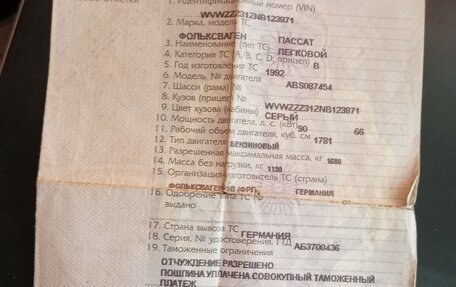 1. Идентификационный номер (VIN)
WVWZZZ31ZNB123871
2. Марка, модель ТС
ФОЛЬКСВАГЕН ПАССАТ
3. Наименование (тип ТС) ЛЕГКОВОЙ
4. Категория ТС (А, В, С, D, прицеп) B
5. Год изготовления ТС 1992
6. Модель, № двигателя ABS087454
7. Шасси (рама) №
8. Кузов (прицеп) № WVWZZZ31ZNB123871
9. Цвет кузова (кабины) СЕРЫЙ
10. Мощность двигателя, л. с. (кВт) 90 66
11. Рабочий объем двигателя, куб. см 1781
12. Тип двигателя БЕНЗИНОВЫЙ
13. Разрешенная максимальная масса, кг 1680
14. Масса без нагрузки, кг 1130
15. Организация-изготовитель ТС (страна)
ФОЛЬКСВАГЕНВ (ФРГ), ГЕРМАНИЯ
16. Одобрение типа ТС № от
выдано
17. Страна вывоза ТС
ГЕРМАНИЯ
18. Серия, № удостоверения, ГТД АБ3700436
19. Таможенные ограничения
ОТЧУЖДЕНИЕ РАЗРЕШЕНО
ПОШЛИНА УПЛАЧЕНА СОВОКУПНЫЙ ТАМОЖЕННЫЙ
ПЛАТЕЖ